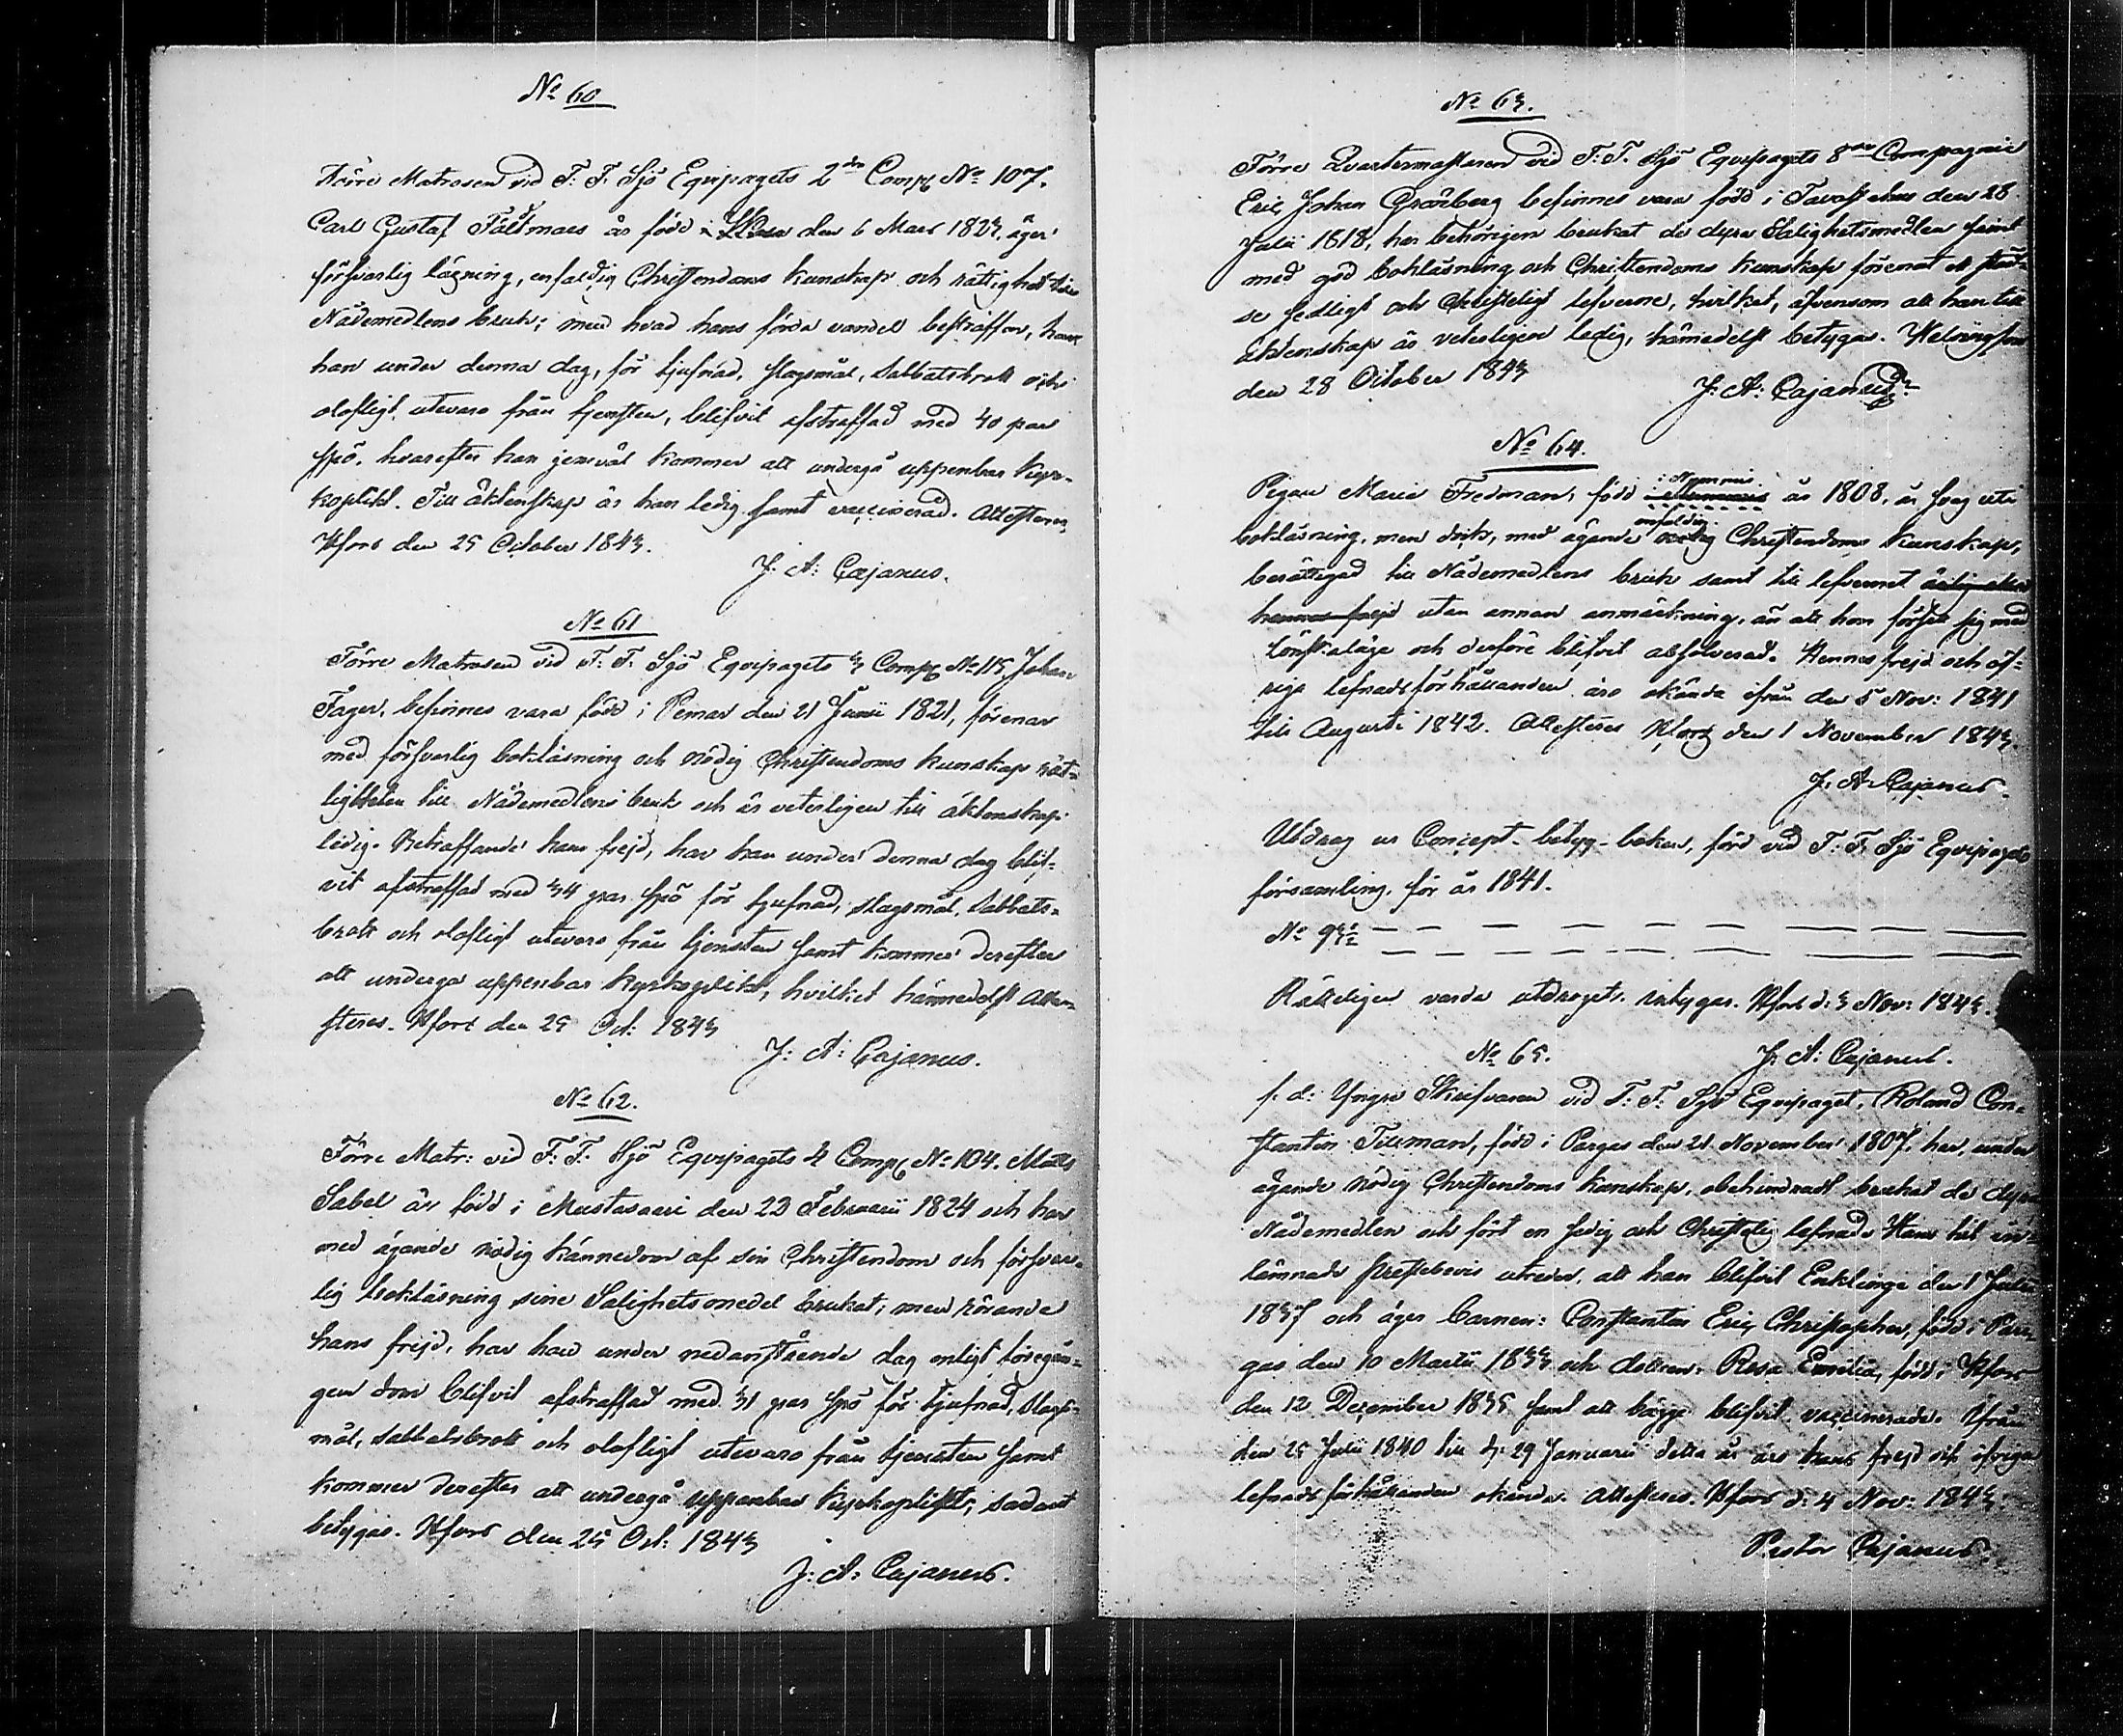 No 60
Förre Matrosen vid F: F. Sjö Equipagets 2dra Comp. No 107.
Carl Gustaf Fältmars är född i den 6 Mars 1823, äger
försvarlig läsning, enfaldig Christendoms kunskap och rättighet till
Nådemedlens bruk; men hvad hans förda vandel beträffar, har
han under denna dag, för tjufnad, slagsmål, sabbatsbrott och
olofligt utevaro från tjensten, blifvit afstraffad med 40 par
spö, hvarefter han jemväl kommer att undergå uppenbar kyr-
koplikt. Till äktenskap är han ledig samt vaccinerad. Attesteras,
Hfors den 25 October 1843.
J: A: Cajanus.
No 61
Förre Matrosen vid F: F. Sjö Equipagets 3 Comp. No 115, Johan
Fager, befinnes vara född i Pemar den 21 Junii 1821, förenar
med försvarlig bokläsning och nödig Christendoms kunskap rät-
tigheten till Nådemedlens bruk och är veterligen till äktenskap
ledig. Beträffande hans frejd, har han under denna dag blif-
vit afstraffad med 34 par spö för tjufnad, slagsmål, sabbats-
brott och olofligt utevaro från tjensten samt kommer derefter
att undergå uppenbar kyrkoplikt, hvilket härmedelst atte-
steras. Hfors den 25 Oct: 1843
J: A: Cajanus.
No 62.
Förre Matr: vid F: F. Sjö Equipagets 4 Comp. No 104. Matts
Sabel är född i Mustasaari den 23 Februarii 1824 och har
med ägande nödig kännedom af sin Christendom och försvar-
lig bokläsning sine Salighetsmedel brukat; men rörande
hans frejd, har han under nedanstående dag enligt föregån-
gen dom blifvit afstraffad med 31 par spö för tjufnad, slags-
mål, sabbatsbrott och olofligt utevaro från tjensten samt
kommer derefter att undergå uppenbar kyrkoplikt; sådant
betygas. Hfors den 25 Oct: 1843
J: A: Cajanus.
No 63.
Förre Quartermästaren vid F: F. Sjö Equipagets 8de Compagnie
Eric Johan Granberg befinnes vara född i Tavastehus den 28
Julii 1818, har behörigen brukat de dyra Salighetsmedlen samt
med god bokläsning och Christendoms kunskap förenat et städ-
se sedligt och Christeligt lefverne, hvilket, äfvensom att han till
äktenskap är veterligen ledig, härmedelst betygas. Helsingfors
den 28 October 1843
J: A: Cajanus
No 64.
i Nummis.
Pigan Maria Fredman, född år 1808, är svag uti
enfaldig
bokläsning, men dock, med ägande nödig Christendoms kunskap,
berättigad till Nådemedlens bruk samt till lefvernet
hennes frejd utan annan anmärkning, än att hon försett sig med
lönskaläge och derföre blifvit absolverad. Hennes frejd och öf-
riga lefnadsförhållanden äro okända ifrån den 5 Nov: 1841
till Augusti 1842. Attesteras Hfors den 1 November 1843.
J. A. Cajanus.
Utdrag ur Concept-betyg-boken, förd vid F: F. Sjö Equipagets
församling, för år 1841.
No 93½ — — — — — — — —
Rätteligen vara utdraget, intygar. Hfors d: 3 Nov: 1843.
J: A: Cajanus.
No 65.
f. d: Yngre Skrifvaren vid F: F: Sjö Equipaget, Roland Con-
stantin Tillman, född i Pargas den 21 November 1807, har, under
ägande nödig Christendoms kunskap, obehindradt brukat de dyra
Nådemedlen och fört en sedig och Christelig lefnad. Hans hit in-
lämnade prestebevis utreder, att han blifvit Enklinge den 1 Julii
1837 och äger barnen: Constantin Eric Christopher, född i Par-
gas den 10 Martii 1833 och dottren: Rosa Emilia, född i Hfors
den 12 December 1835 samt att bägge blifvit vaccinerade. Ifrån
den 25 Julii 1840 till d: 29 Januarii detta år äro hans frejd och öfriga
lefnadsförhållanden okända. Attesteras. Hfors d: 4 Nov: 1843.
Pastor Cajanus.